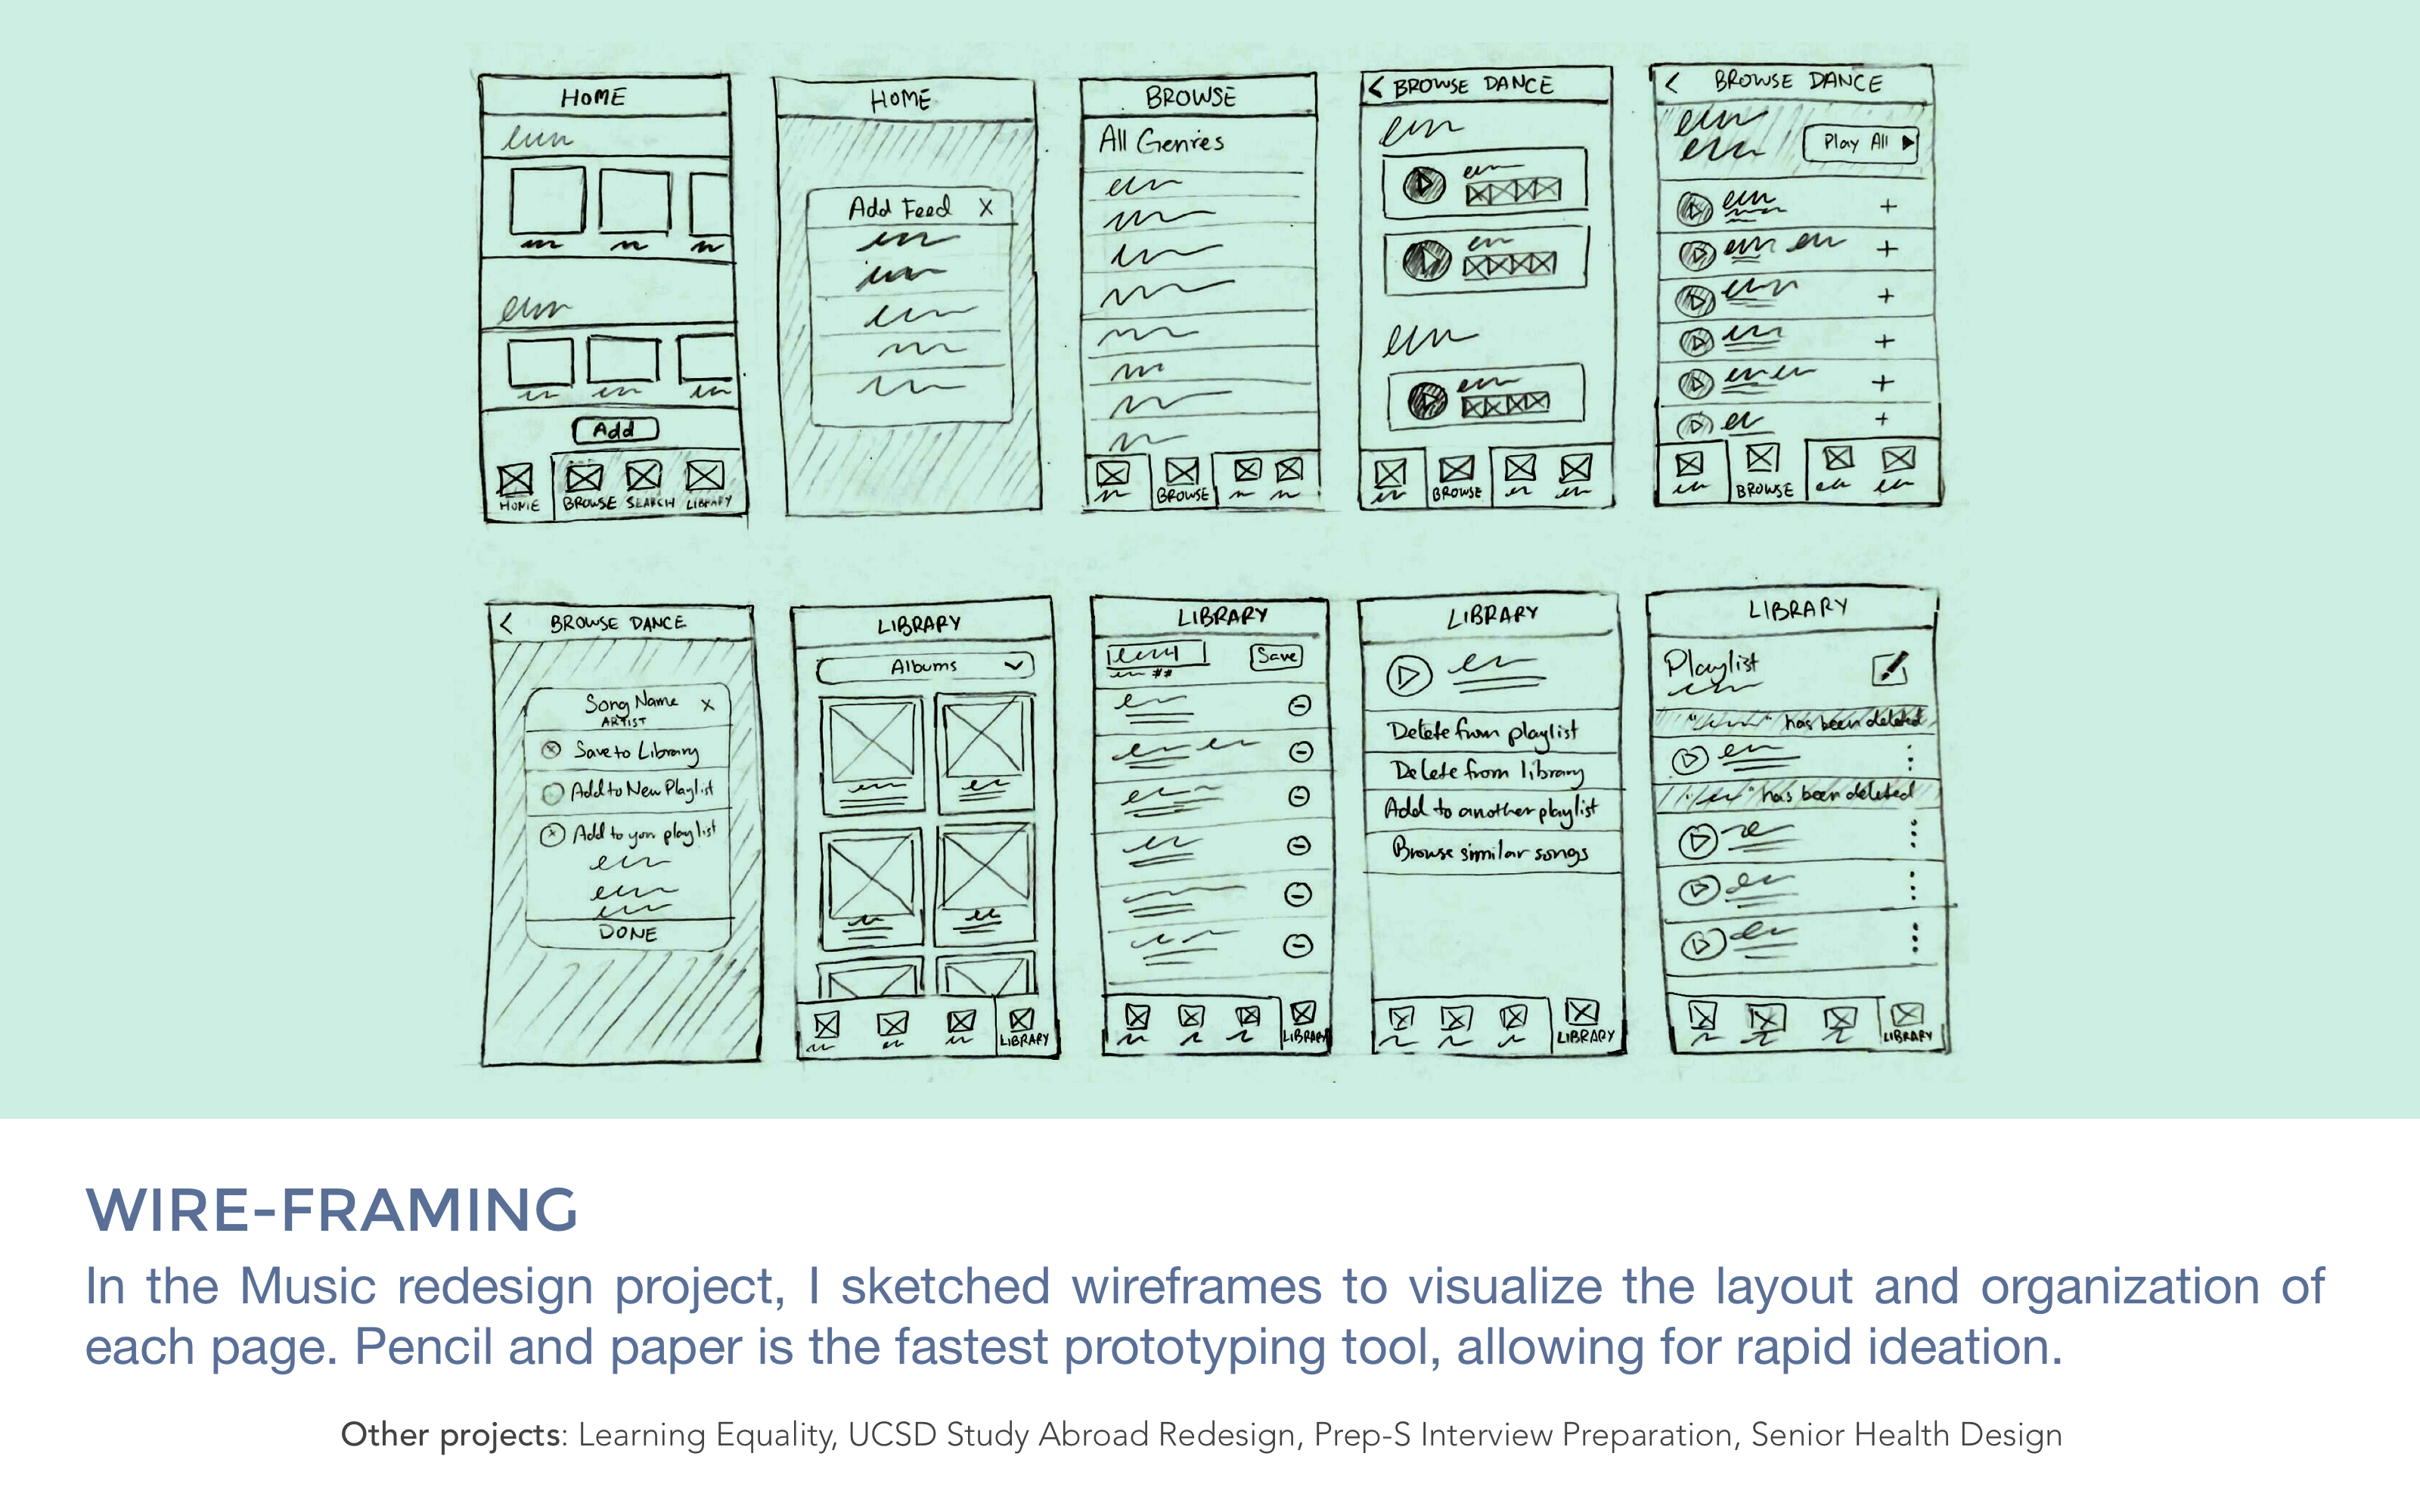 HOME
Add
HOME BROWSE SEARCH LIBRARY
HOME
Add Feed X
BROWSE
All Genres
BROWSE
< BROWSE DANCE
BROWSE
< BROWSE DANCE
Play All
+
+
+
+
+
+
BROWSE
< BROWSE DANCE
Song Name X
ARTIST
Save to Library
Add to New Playlist
Add to your playlist
DONE
LIBRARY
Albums
LIBRARY
LIBRARY
Save
##
LIBRARY
LIBRARY
Delete from playlist
Delete from library
Add to another playlist
Browse similar songs
LIBRARY
LIBRARY
Playlist
has been deleted
has been deleted
LIBRARY
WIRE-FRAMING
In the Music redesign project, I sketched wireframes to visualize the layout and organization of
each page. Pencil and paper is the fastest prototyping tool, allowing for rapid ideation.
Other projects: Learning Equality, UCSD Study Abroad Redesign, Prep-S Interview Preparation, Senior Health Design